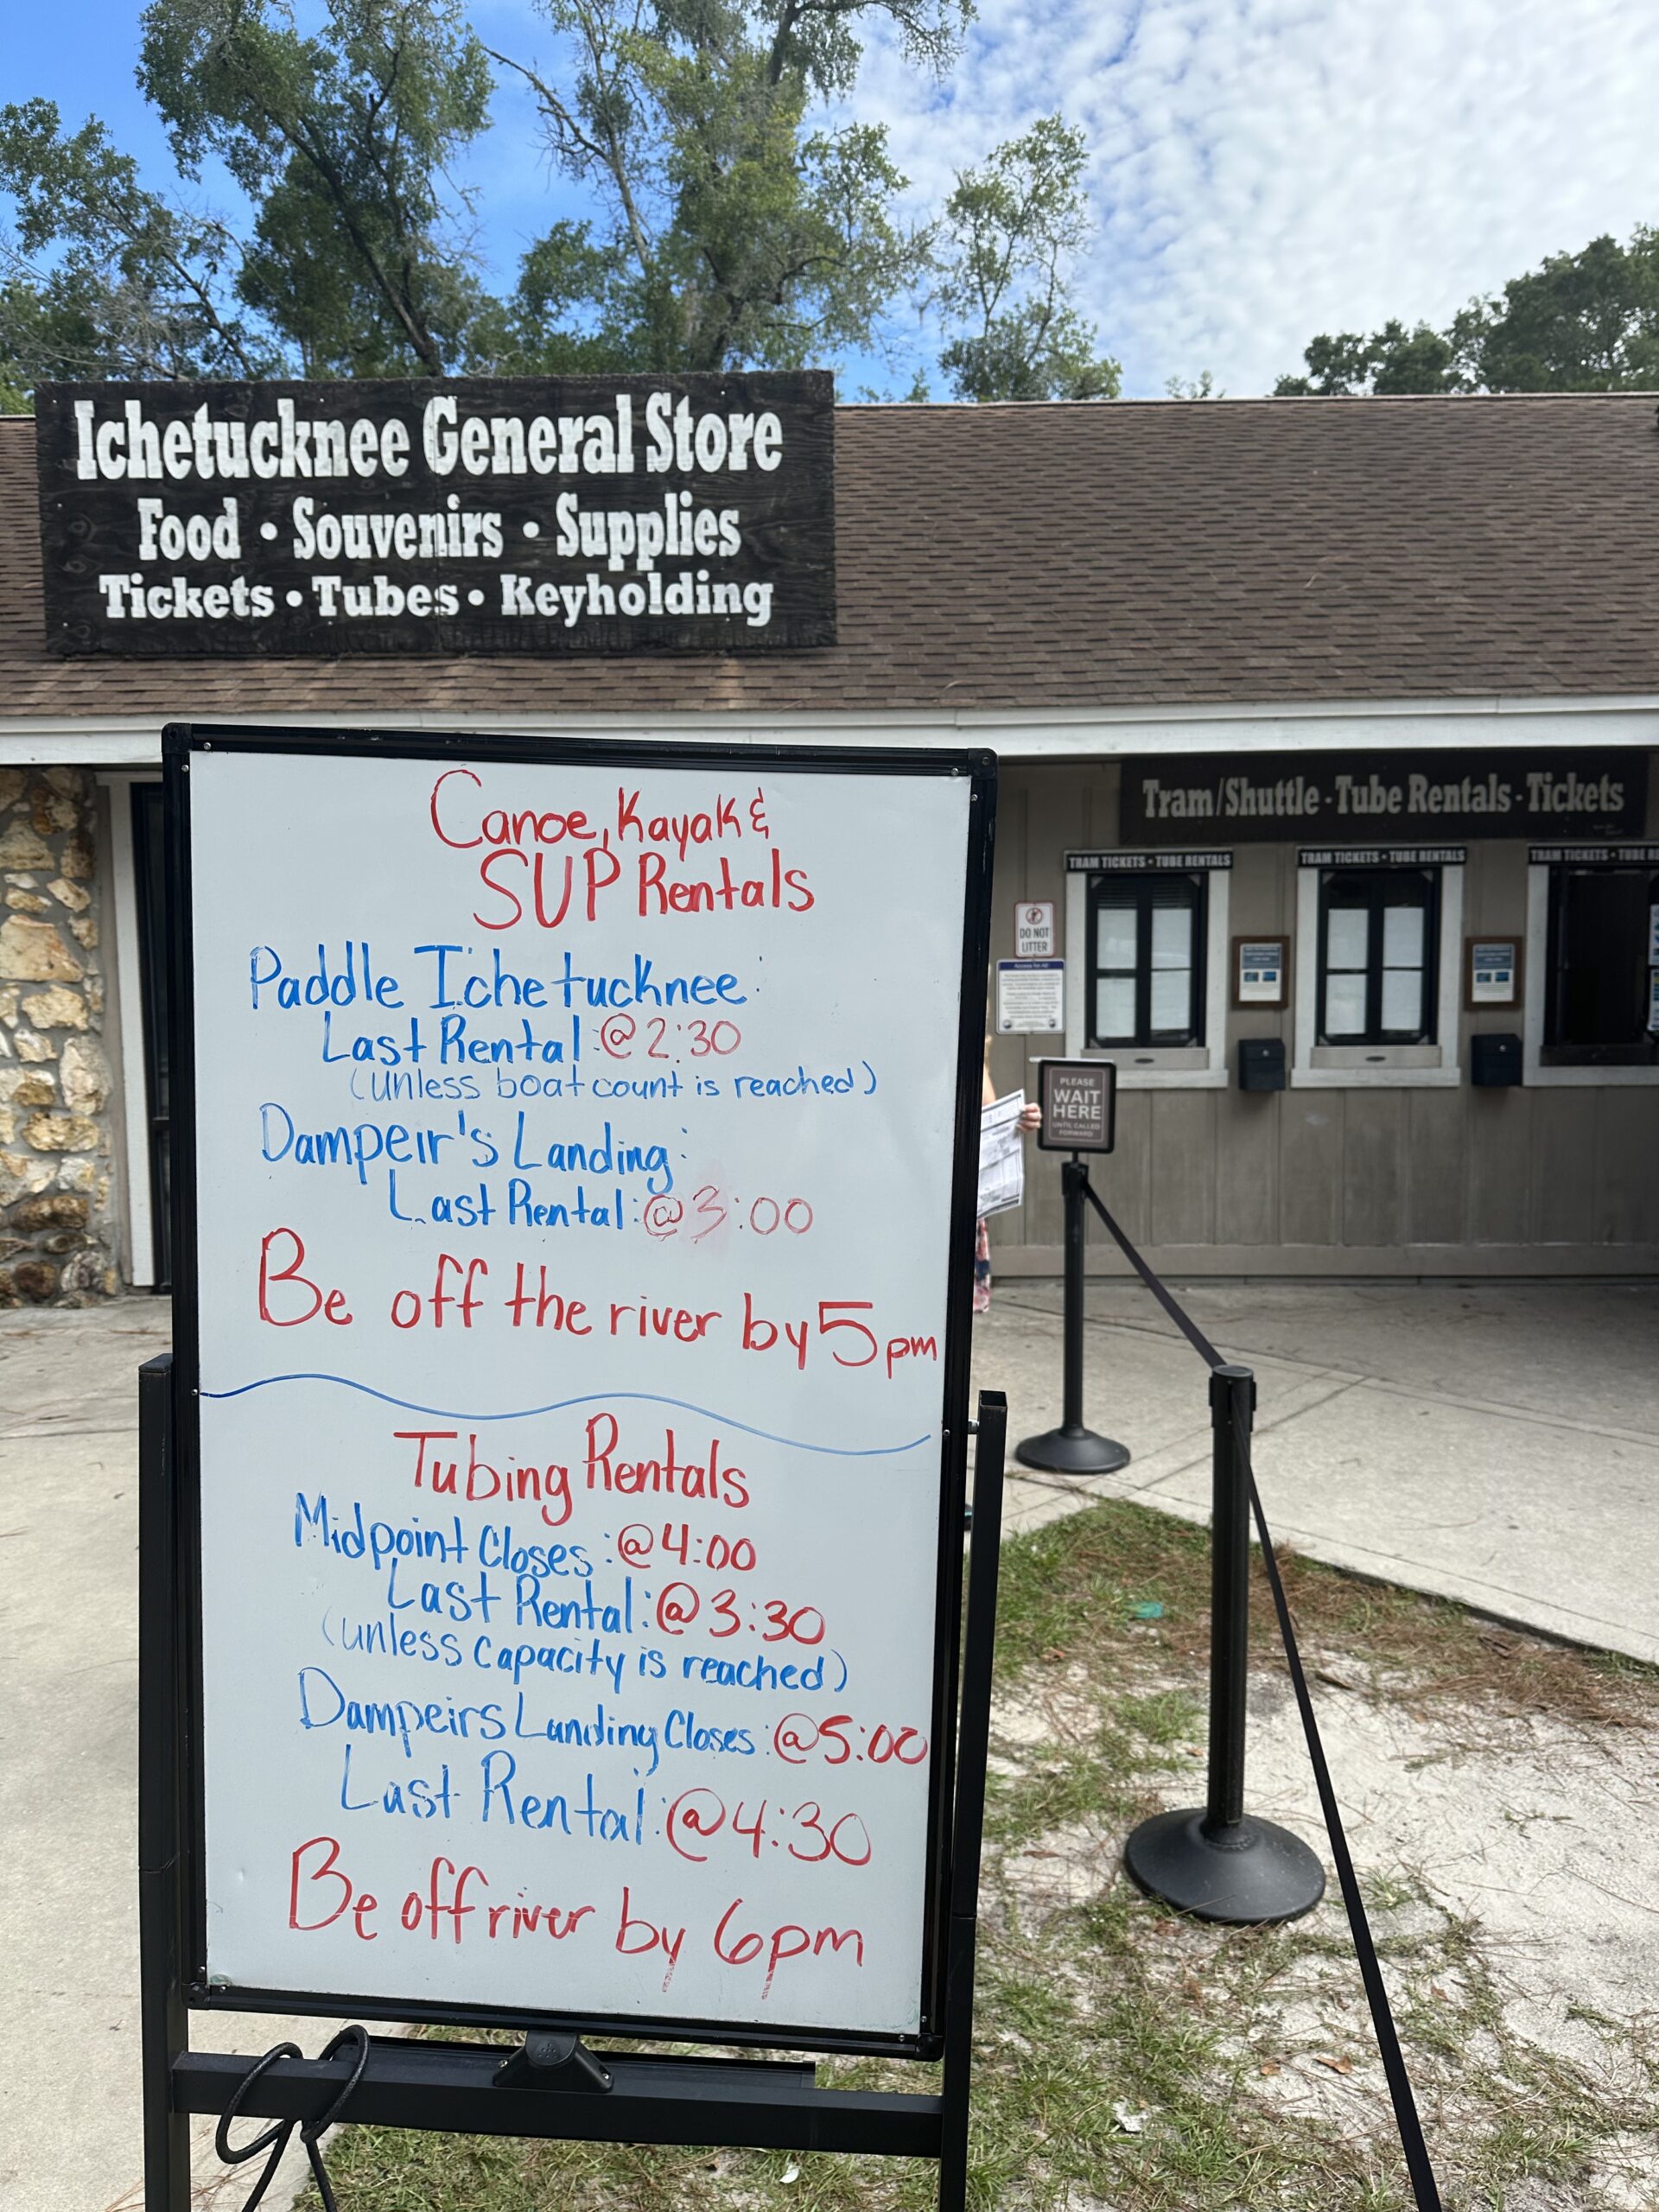 Ichetucknee General Store
Food • Souvenirs • Supplies
Tickets • Tubes • Keyholding
Canoe, Kayak &
SUP Rentals
Paddle Ichetucknee:
Last Rental: @ 2:30
(unless boat count is reached)
Dampeir's Landing:
Last Rental: @ 3:00
Be off the river by 5pm
Tubing Rentals
Midpoint Closes: @ 4:00
Last Rental: @ 3:30
(unless capacity is reached)
Dampeirs Landing Closes: @ 5:00
Last Rental: @ 4:30
Be off river by 6pm
Tram/Shuttle - Tube Rentals - Tickets
TRAM TICKETS • TUBE RENTALS
TRAM TICKETS • TUBE RENTALS
TRAM TICKETS • TUBE
DO NOT
LITTER
PLEASE
WAIT
HERE
UNTIL CALLED
FORWARD